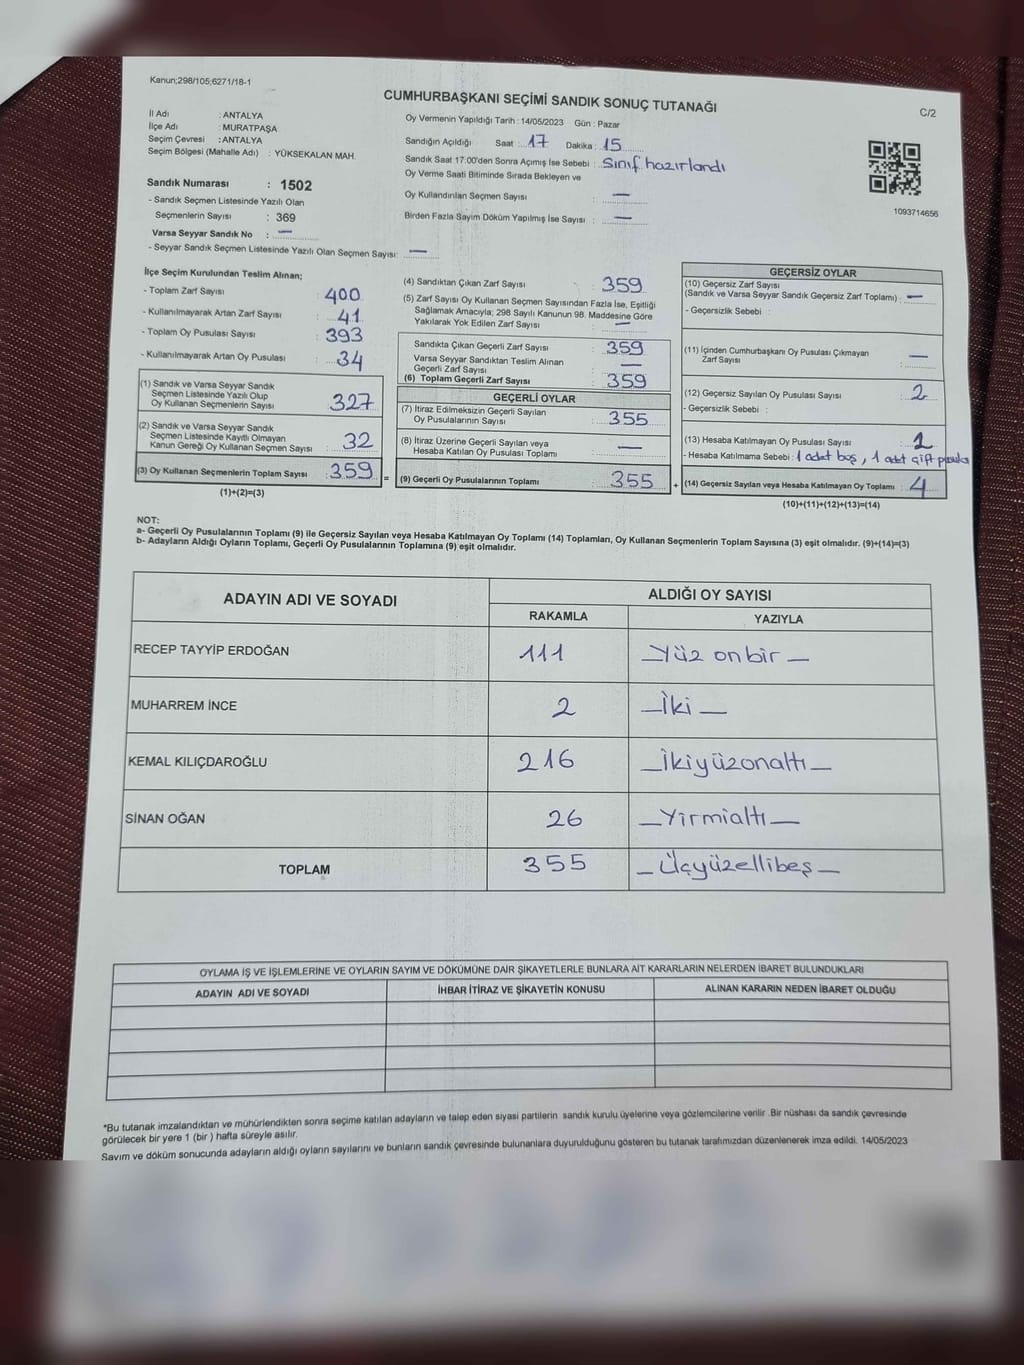 Kanun;298/105;6271/18-1
CUMHURBAŞKANI SEÇİMİ SANDIK SONUÇ TUTANAĞI
C/2
İl Adı : ANTALYA
İlçe Adı : MURATPAŞA
Seçim Çevresi : ANTALYA
Seçim Bölgesi (Mahalle Adı) : YÜKSEKALAN MAH.
Sandık Numarası : 1502
- Sandık Seçmen Listesinde Yazılı Olan
Seçmenlerin Sayısı : 369
Varsa Seyyar Sandık No : —
- Seyyar Sandık Seçmen Listesinde Yazılı Olan Seçmen Sayısı: —
Oy Vermenin Yapıldığı Tarih : 14/05/2023 Gün : Pazar
Sandığın Açıldığı Saat : 17 Dakika : 15
Sandık Saat 17:00'den Sonra Açımış İse Sebebi : Sınıf hazırlandı
Oy Verme Saati Bitiminde Sırada Bekleyen ve
Oy Kullandırılan Seçmen Sayısı : —
Birden Fazla Sayım Döküm Yapılmış İse Sayısı : —
1093714656
İlçe Seçim Kurulundan Teslim Alınan;
- Toplam Zarf Sayısı : 400
- Kullanılmayarak Artan Zarf Sayısı : 41
- Toplam Oy Pusulası Sayısı : 393
- Kullanılmayarak Artan Oy Pusulası : 34
(1) Sandık ve Varsa Seyyar Sandık
Seçmen Listesinde Yazılı Olup
Oy Kullanan Seçmenlerin Sayısı : 327
(2) Sandık ve Varsa Seyyar Sandık
Seçmen Listesinde Kayıtlı Olmayan
Kanun Gereği Oy Kullanan Seçmen Sayısı : 32
(3) Oy Kullanan Seçmenlerin Toplam Sayısı : 359 =
(1)+(2)=(3)
(4) Sandıktan Çıkan Zarf Sayısı : 359
(5) Zarf Sayısı Oy Kullanan Seçmen Sayısından Fazla İse, Eşitliği
Sağlamak Amacıyla; 298 Sayılı Kanunun 98. Maddesine Göre
Yakılarak Yok Edilen Zarf Sayısı : —
Sandıkta Çıkan Geçerli Zarf Sayısı : 359
Varsa Seyyar Sandıktan Teslim Alınan
Geçerli Zarf Sayısı : —
(6) Toplam Geçerli Zarf Sayısı : 359
GEÇERLİ OYLAR
(7) İtiraz Edilmeksizin Geçerli Sayılan
Oy Pusulalarının Sayısı : 355
(8) İtiraz Üzerine Geçerli Sayılan veya
Hesaba Katılan Oy Pusulası Toplamı : —
(9) Geçerli Oy Pusulalarının Toplamı : 355 +
GEÇERSİZ OYLAR
(10) Geçersiz Zarf Sayısı
(Sandık ve Varsa Seyyar Sandık Geçersiz Zarf Toplamı) : —
- Geçersizlik Sebebi :
(11) İçinden Cumhurbaşkanı Oy Pusulası Çıkmayan
Zarf Sayısı : —
(12) Geçersiz Sayılan Oy Pusulası Sayısı : 2
- Geçersizlik Sebebi :
(13) Hesaba Katılmayan Oy Pusulası Sayısı :
- Hesaba Katılmama Sebebi : 1 adet boş, 1 adet çift pusula
(14) Geçersiz Sayılan veya Hesaba Katılmayan Oy Toplamı : 4
(10)+(11)+(12)+(13)=(14)
NOT:
a- Geçerli Oy Pusulalarının Toplamı (9) ile Geçersiz Sayılan veya Hesaba Katılmayan Oy Toplamı (14) Toplamları, Oy Kullanan Seçmenlerin Toplam Sayısına (3) eşit olmalıdır. (9)+(14)=(3)
b- Adayların Aldığı Oyların Toplamı, Geçerli Oy Pusulalarının Toplamına (9) eşit olmalıdır.
ADAYIN ADI VE SOYADI
ALDIĞI OY SAYISI
RAKAMLA YAZIYLA
RECEP TAYYİP ERDOĞAN 111 —Yüz onbir—
MUHARREM İNCE 2 —İki—
KEMAL KILIÇDAROĞLU 216 —İkiyüzonaltı—
SİNAN OĞAN 26 —Yirmialtı—
TOPLAM 355 —Üçyüzellibeş—
OYLAMA İŞ VE İŞLEMLERİNE VE OYLARIN SAYIM VE DÖKÜMÜNE DAİR ŞİKAYETLERLE BUNLARA AİT KARARLARIN NELERDEN İBARET BULUNDUKLARI
ADAYIN ADI VE SOYADI İHBAR İTİRAZ VE ŞİKAYETİN KONUSU ALINAN KARARIN NEDEN İBARET OLDUĞU
*Bu tutanak imzalandıktan ve mühürlendikten sonra seçime katılan adayların ve talep eden siyasi partilerin sandık kurulu üyelerine veya gözlemcilerine verilir .Bir nüshası da sandık çevresinde
görülecek bir yere 1 (bir ) hafta süreyle asılır.
Sayım ve döküm sonucunda adayların aldığı oyların sayılarını ve bunların sandık çevresinde bulunanlara duyurulduğunu gösteren bu tutanak tarafımızdan düzenlenerek imza edildi. 14/05/2023